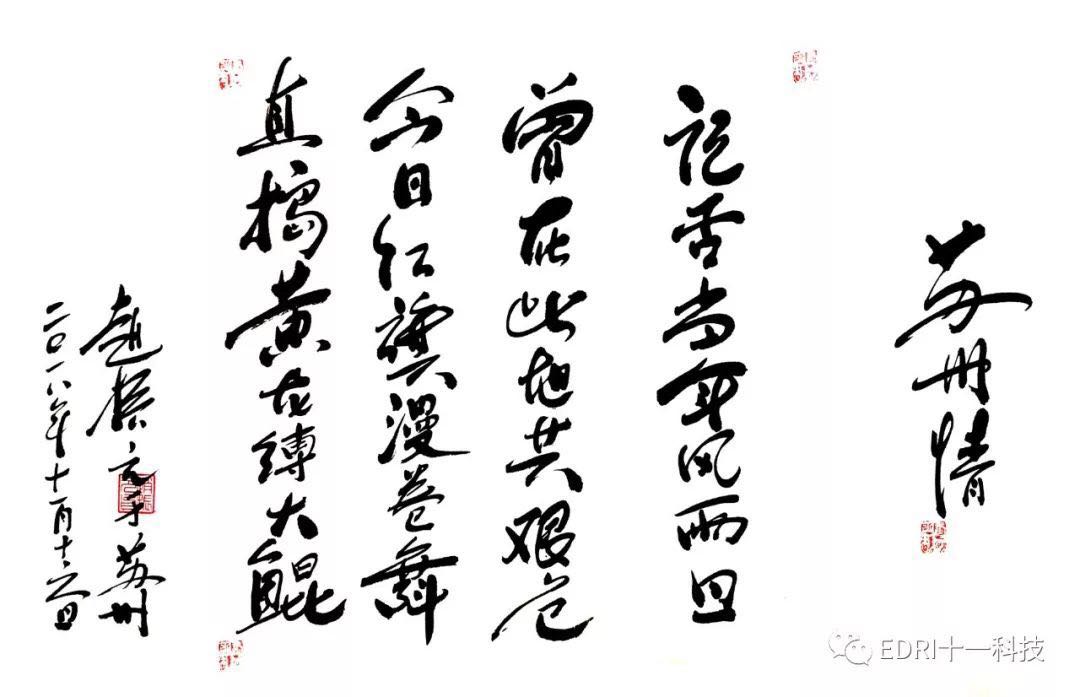 苏州情
记否当年风雨日
曾在此地共艰危
今日红旗漫卷舞
直捣黄龙缚大鲲
赵振元于苏州
二〇一八年十一月十日
EDRI十一科技